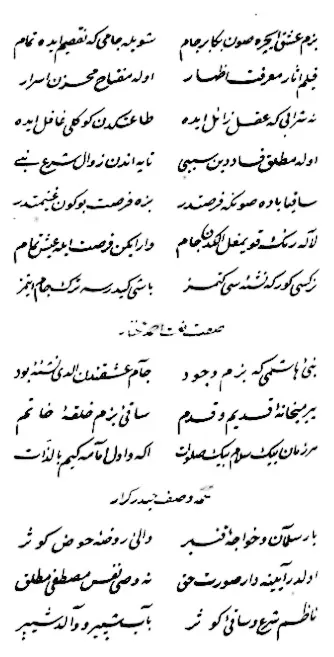 بزم عشق ایچره صون بکا بر جام شویله جامی که نقصم ایده تمام
قیلم آثار معرفت اظهار اوله مفتاح مخزن اسرار
نه شرابی که عقل زائل ایده طاعتکدن کوکلی غافل ایده
اوله مطلق فساد دین سببی تابه اندن زوال شرع نبی
ساقیا باده صونکه فرصتدر بزه فرصت بوکون غنیمتدر
لاله رنک قویمغل الکدن جام وار ایکن فرصت ایله عیش تمام
نرکسی کور که نشئه سی کتمز باشی کیدرسه ترک جام ایتمز
صفت نعت احمد مختار
نبی هاشمی که بزم وجود جام عشقندن الدی نشئهٔ بود
پیر میخانهٔ قدیم و قدم ساقی بزم حلقهٔ خاتم
هر زمان بیک سلام بیک صلوات اکه و اول امامه کیم بالذات
وصف حیدر کرار
یار سلمان و خواجهٔ قنبر والی روضهٔ حوض کوثر
اولدر آیینه دار صورت حق نه وصی نفس مصطفی مطلق
ناظم شرع و ساقی کوثر باب شبیر و والد شبر